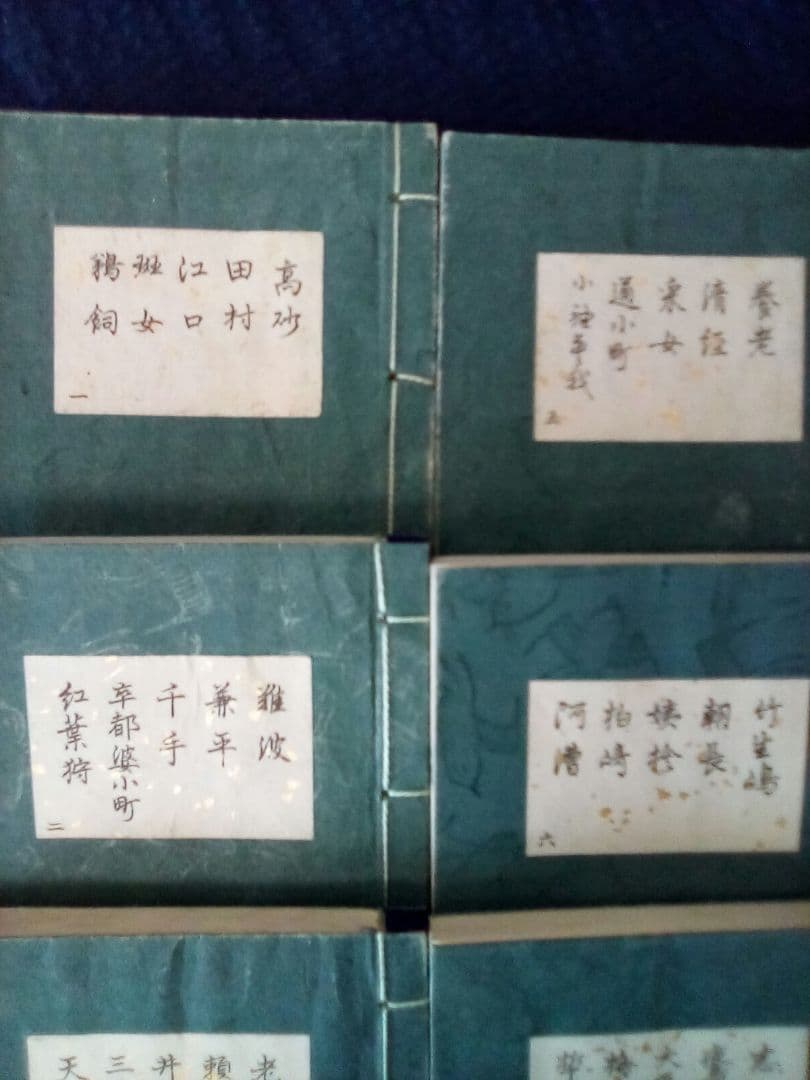 高砂
田村
江口
班女
鵜飼
一
養老
清経
采女
通小町
小袖曽我
五
難波
兼平
千手
卒都婆小町
紅葉狩
二
竹生嶋
朝長
姨捨
柏崎
阿漕
六
老
頼
井
三
天